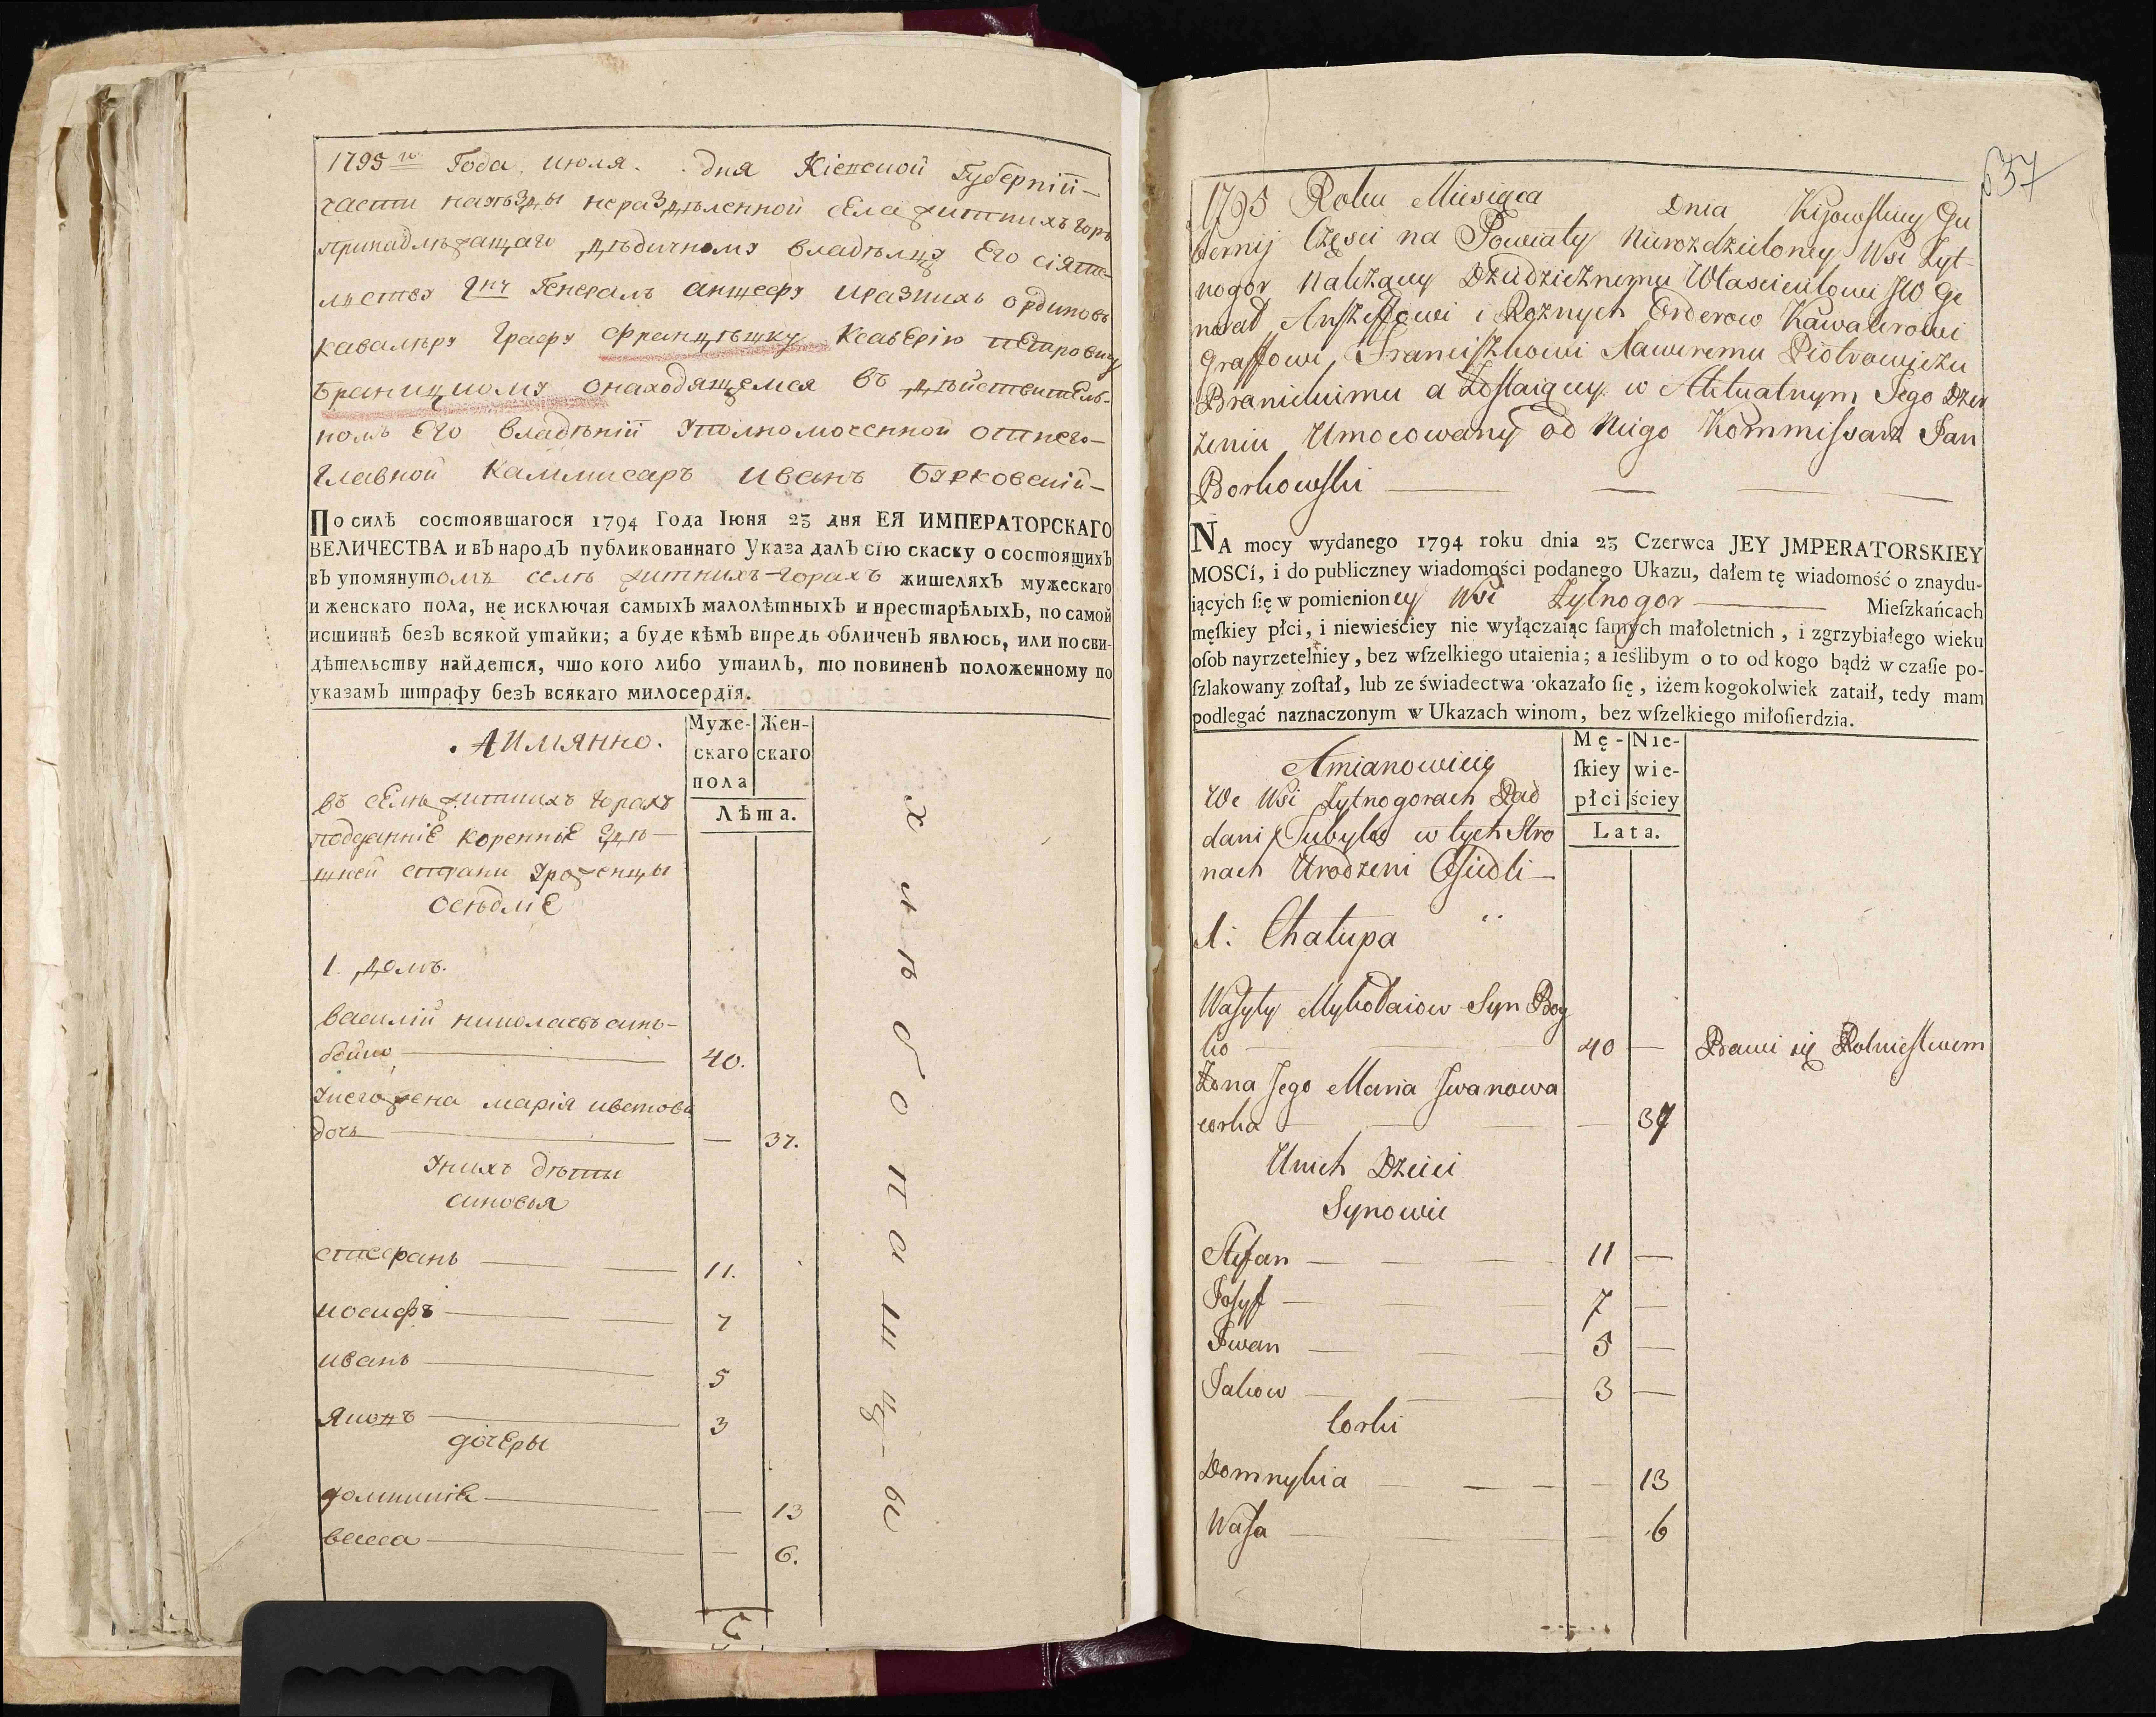 1795го Года июля. дня Кіевской Губерніи
части науѣзды нераздѣленной села Житнихъ горъ
принадлѣжащаго дѣдичному владѣлцу Его сіяте-
лству Гну Генералъ аншефу иразнихъ ординовъ
кавалѣру Графу францѣшку Ксаверію петровичу
браницкому онаходящемся въ дѣйствитель-
номъ Его владѣніи уполномоченной отнего
главной каммисаръ иванъ Бурковскій
По силѣ состоявшагося 1794 Года Іюня 23 дня ЕЯ ИМПЕРАТОРСКАГО
ВЕЛИЧЕСТВА и въ народъ публикованнаго Указа далъ сію скаску о состоящихъ
въ упомянутомъ селѣ житнихъ-горахъ жителяхъ мужескаго
и женскаго пола, не исключая самыхъ малолѣтныхъ и престарѣлыхъ, по самой
истиннѣ безъ всякой утайки; а буде кѣмъ впредь обличенъ явлюсь, или по сви-
дѣтельству найдется, что кого либо утаилъ, то повиненъ положенному по
указамъ штрафу безъ всякаго милосердія.
Муже- Жен-
скаго скаго
пола
Лѣта.
въ селѣ житнихъ горахъ
подданніе коренніе здѣ-
шней страни уроженцы
осѣдліе
1. домъ.
василій николаевъ синъ
бойко 40.
унего жена марія иванова
дочь — 37.
унихъ дѣти
синовья
стефанъ 11.
иосифъ 7
иванъ 5
яковъ 3
дочеры
домникія — 13
васса — 6.
хлѣбопашцы
637
1795 Roku Miesiąca Dnia Kijowskiey Gu
bernij Częsci na Powiaty Nierozdzieloney Wsi Żyt-
nogor Należącey Dziedzicznemu Własicielowi JW Ge
nerał Anszeffowi i Roznych Orderow Kawalerowi
Graffowi Franciszkowi Xaweremu Piotrowiczu
Branickiemu a Zostaiącey w Aktualnym Jego Dzier
żeniu Umocowany od Niego Kommissarz Jan
Borkowski
NA mocy wydanego 1794 roku dnia 23 Czerwca JEY JMPERATORSKIEY
MOSCí, i do publiczney wiadomości podanego Ukazu, dałem tę wiadomość o znaydu-
iących ſię w pomienioney Wsi Żytnogor Mieſzkańcach
męſkiey płci, i niewieściey nie wyłączaiąc ſamych małoletnich, i zgrzybiałego wieku
oſob nayrzetelniey, bez wſzelkiego utaienia; a ieślibym o to od kogo bądź w czaſie po-
ſzlakowany zoſtał, lub ze świadectwa okazało ſię, iżem kogokolwiek zataił, tedy mam
podlegać naznaczonym w Ukazach winom, bez wſzelkiego miłoſierdzia.
Mę- Nie-
ſkiey wie-
płci ściey
Lata.
We Wsi Żytnogorach Pod
dani Tubylcy w tych Stro
nach Urodzeni Osiedli
1: Chałupa
Wasyly Mykołaiow Syn Boy
ko 40 — Bawi się Rolniestwem
Żona Jego Maria Jwanowa
corka — 37
U nich Dzieci
Synowie
Stefan 11 —
Josyf 7 —
Iwan 5 —
Jakow 3 —
Corki
Domnykia — 13
Wasa — 6